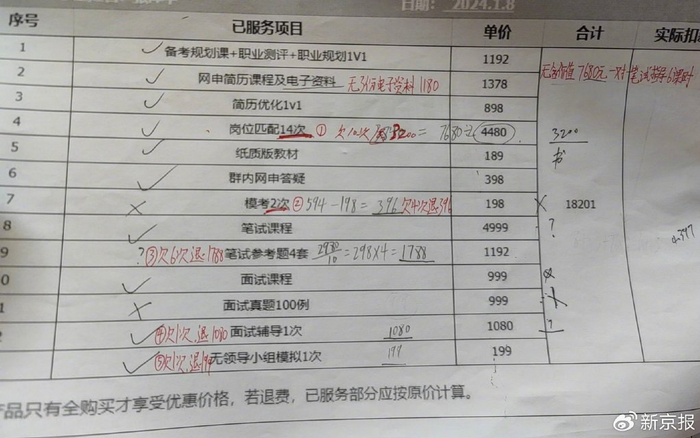 日期: 2024.1.8
序号 已服务项目 单价 合计 实际扣
1 备考规划课+职业测评+职业规划1V1 1192
2 网申简历课程及电子资料 1180 1378
3 简历优化1v1 898
4 岗位匹配14次 ① 欠10次 3200 = 7680 4480 3200
5 纸质版教材 189 书
6 群内网申答疑 398
7 模考2次 ② 594-198=396 欠4次退396 198 18201
8 笔试课程 4999 ?
9 ? ③欠6次退1788 笔试参考题4套 2980/10=298×4=1788 1192
0 面试课程 999
1 面试真题100例 999
2 ④欠1次退1080 面试辅导1次 1080 1080 ?
⑤欠1次退199 无领导小组模拟1次 199 199
产品只有全购买才享受优惠价格，若退费，已服务部分应按原价计算。
新京报